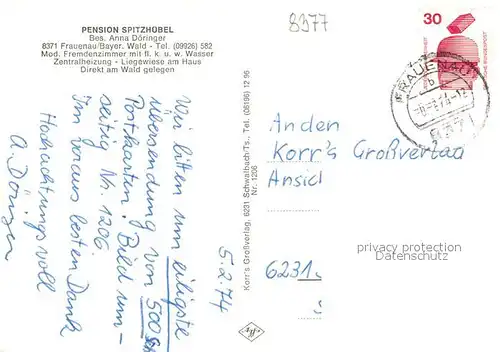 PENSION SPITZHÜBEL
Bes. Anna Döringer
8371 Frauenau/Bayer. Wald - Tel. (09926) 582
Mod. Fremdenzimmer mit fl. k. u. w. Wasser
Zentralheizung - Liegewiese am Haus
Direkt am Wald gelegen
8377
30
FRAUENAU
8371
Wir bitten um eiligste
übersendung von 500 St
Postkarten. Bild um-
seitig Nr. 1206
Im voraus besten Dank
Hochachtungsvoll
A. Döringer
5.2.74
Korr's Großverlag, 6231 Schwalbach/Ts., Tel. (06196) 12 96
Nr. 1206
An den
Korr's Großverlag
Ansich
6231
privacy protection
DELCAMPE